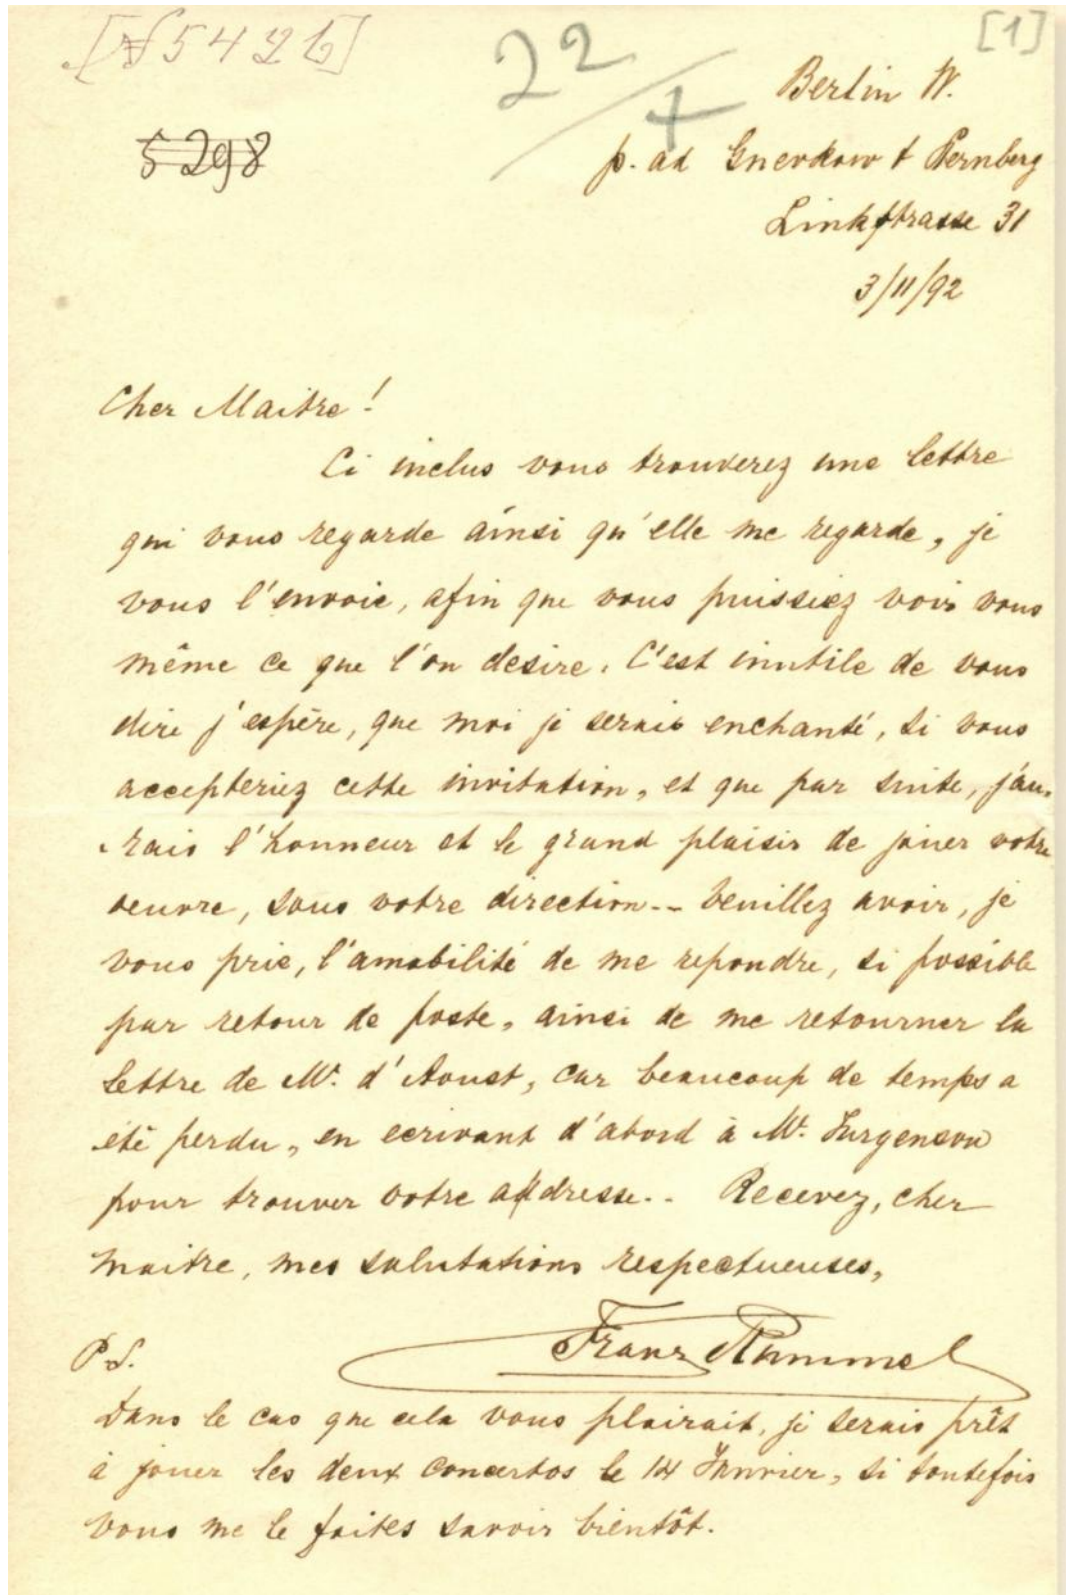 [№5426]
22/7
[1]
5298
Berlin W.
p. ad Gnevkow & Sternberg
Linkstrasse 31
3/11/92
Cher Maitre!
Ci inclus vous trouverez une lettre
qui vous regarde ainsi qu'elle me regarde, je
vous l'envoie, afin que vous puissiez voir vous
même ce que l'on desire. C'est inutile de vous
dire j'espère, que moi je serais enchanté, si vous
accepteriez cette invitation, et que par suite, j'au-
rais l'honneur et le grand plaisir de jouer votre
oeuvre, sous votre direction.- Veuillez avoir, je
vous prie, l'amabilité de me repondre, si possible
par retour de poste, ainsi de me retourner la
lettre de Mr. d'Aoust, car beaucoup de temps a
été perdu, en ecrivant d'abord à Mr. Jurgenson
pour trouver votre addresse.. Recevez, cher
maitre, mes salutations respectueuses,
Franz Rummel
P.S.
Dans le cas que cela vous plairait, je serais prêt
à jouer les deux concertos le 14 Janvier, si toutefois
vous me le faites savoir bientôt.